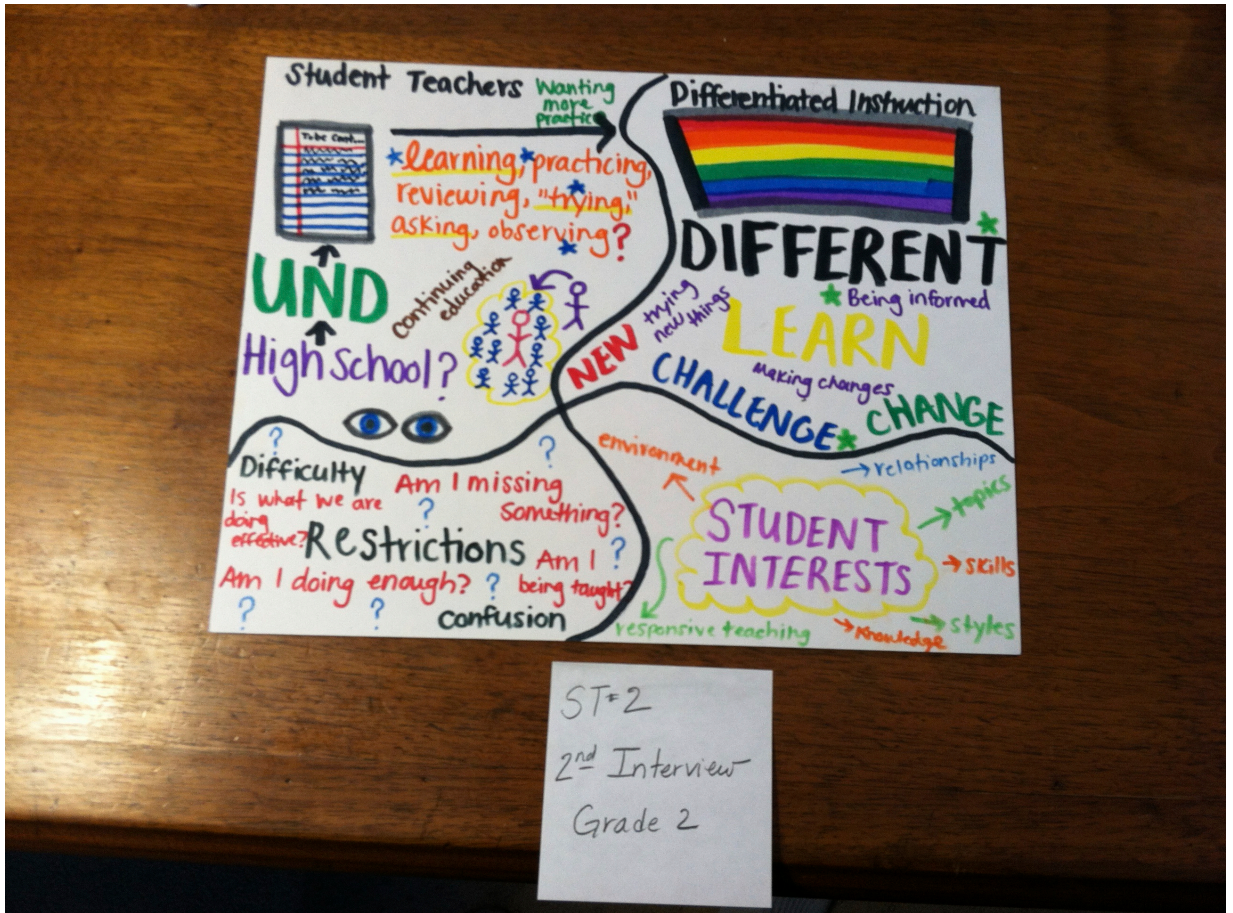 Student Teachers
Wanting
more
practice
To be Cont...
learning, practicing,
reviewing, "trying,"
asking, observing?
UND
continuing
education
High School?
Differentiated Instruction
DIFFERENT
Being informed
trying
new things
LEARN
NEW
Making changes
CHALLENGE
CHANGE
?
?
Difficulty
Am I missing
something?
Is what we are
doing
effective?
?
Restrictions
Am I
being taught?
?
Am I doing enough?
?
?
?
confusion
environment
relationships
topics
STUDENT
INTERESTS
skills
styles
Knowledge
responsive teaching
ST#2
2nd Interview
Grade 2